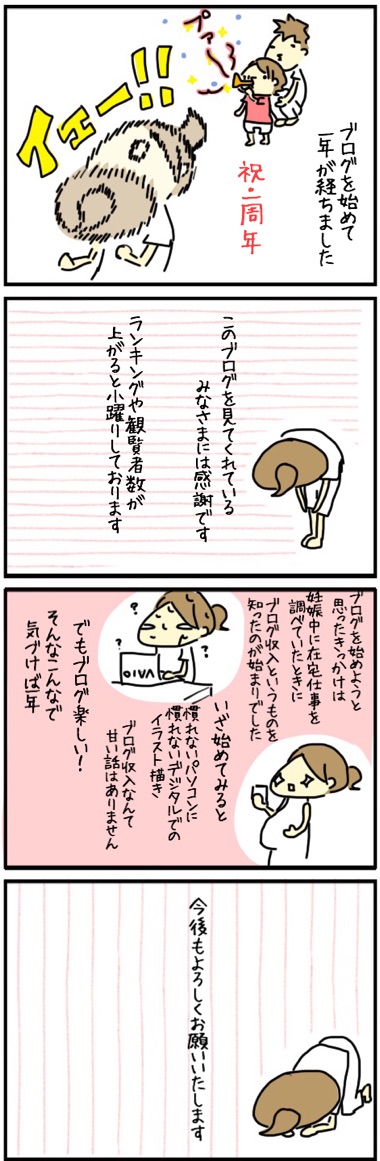 ブログを始めて
一年が経ちました
プァ〜
祝・一周年
イエー!!
このブログを見てくれている
みなさまには感謝です
ランキングや観覧者数が
上がると小躍りしております
ブログを始めようと
思ったきっかけは
妊娠中に在宅仕事を
調べていたときに
ブログ収入というものを
知ったのが始まりでした
?
?
?
VAIO
いざ始めてみると
慣れないパソコンに
慣れないデジタルでの
イラスト描き
ブログ収入なんて
甘い話はありません
でもブログ楽しい!
そんなこんなで
気づけば一年
今後もよろしくお願いいたします